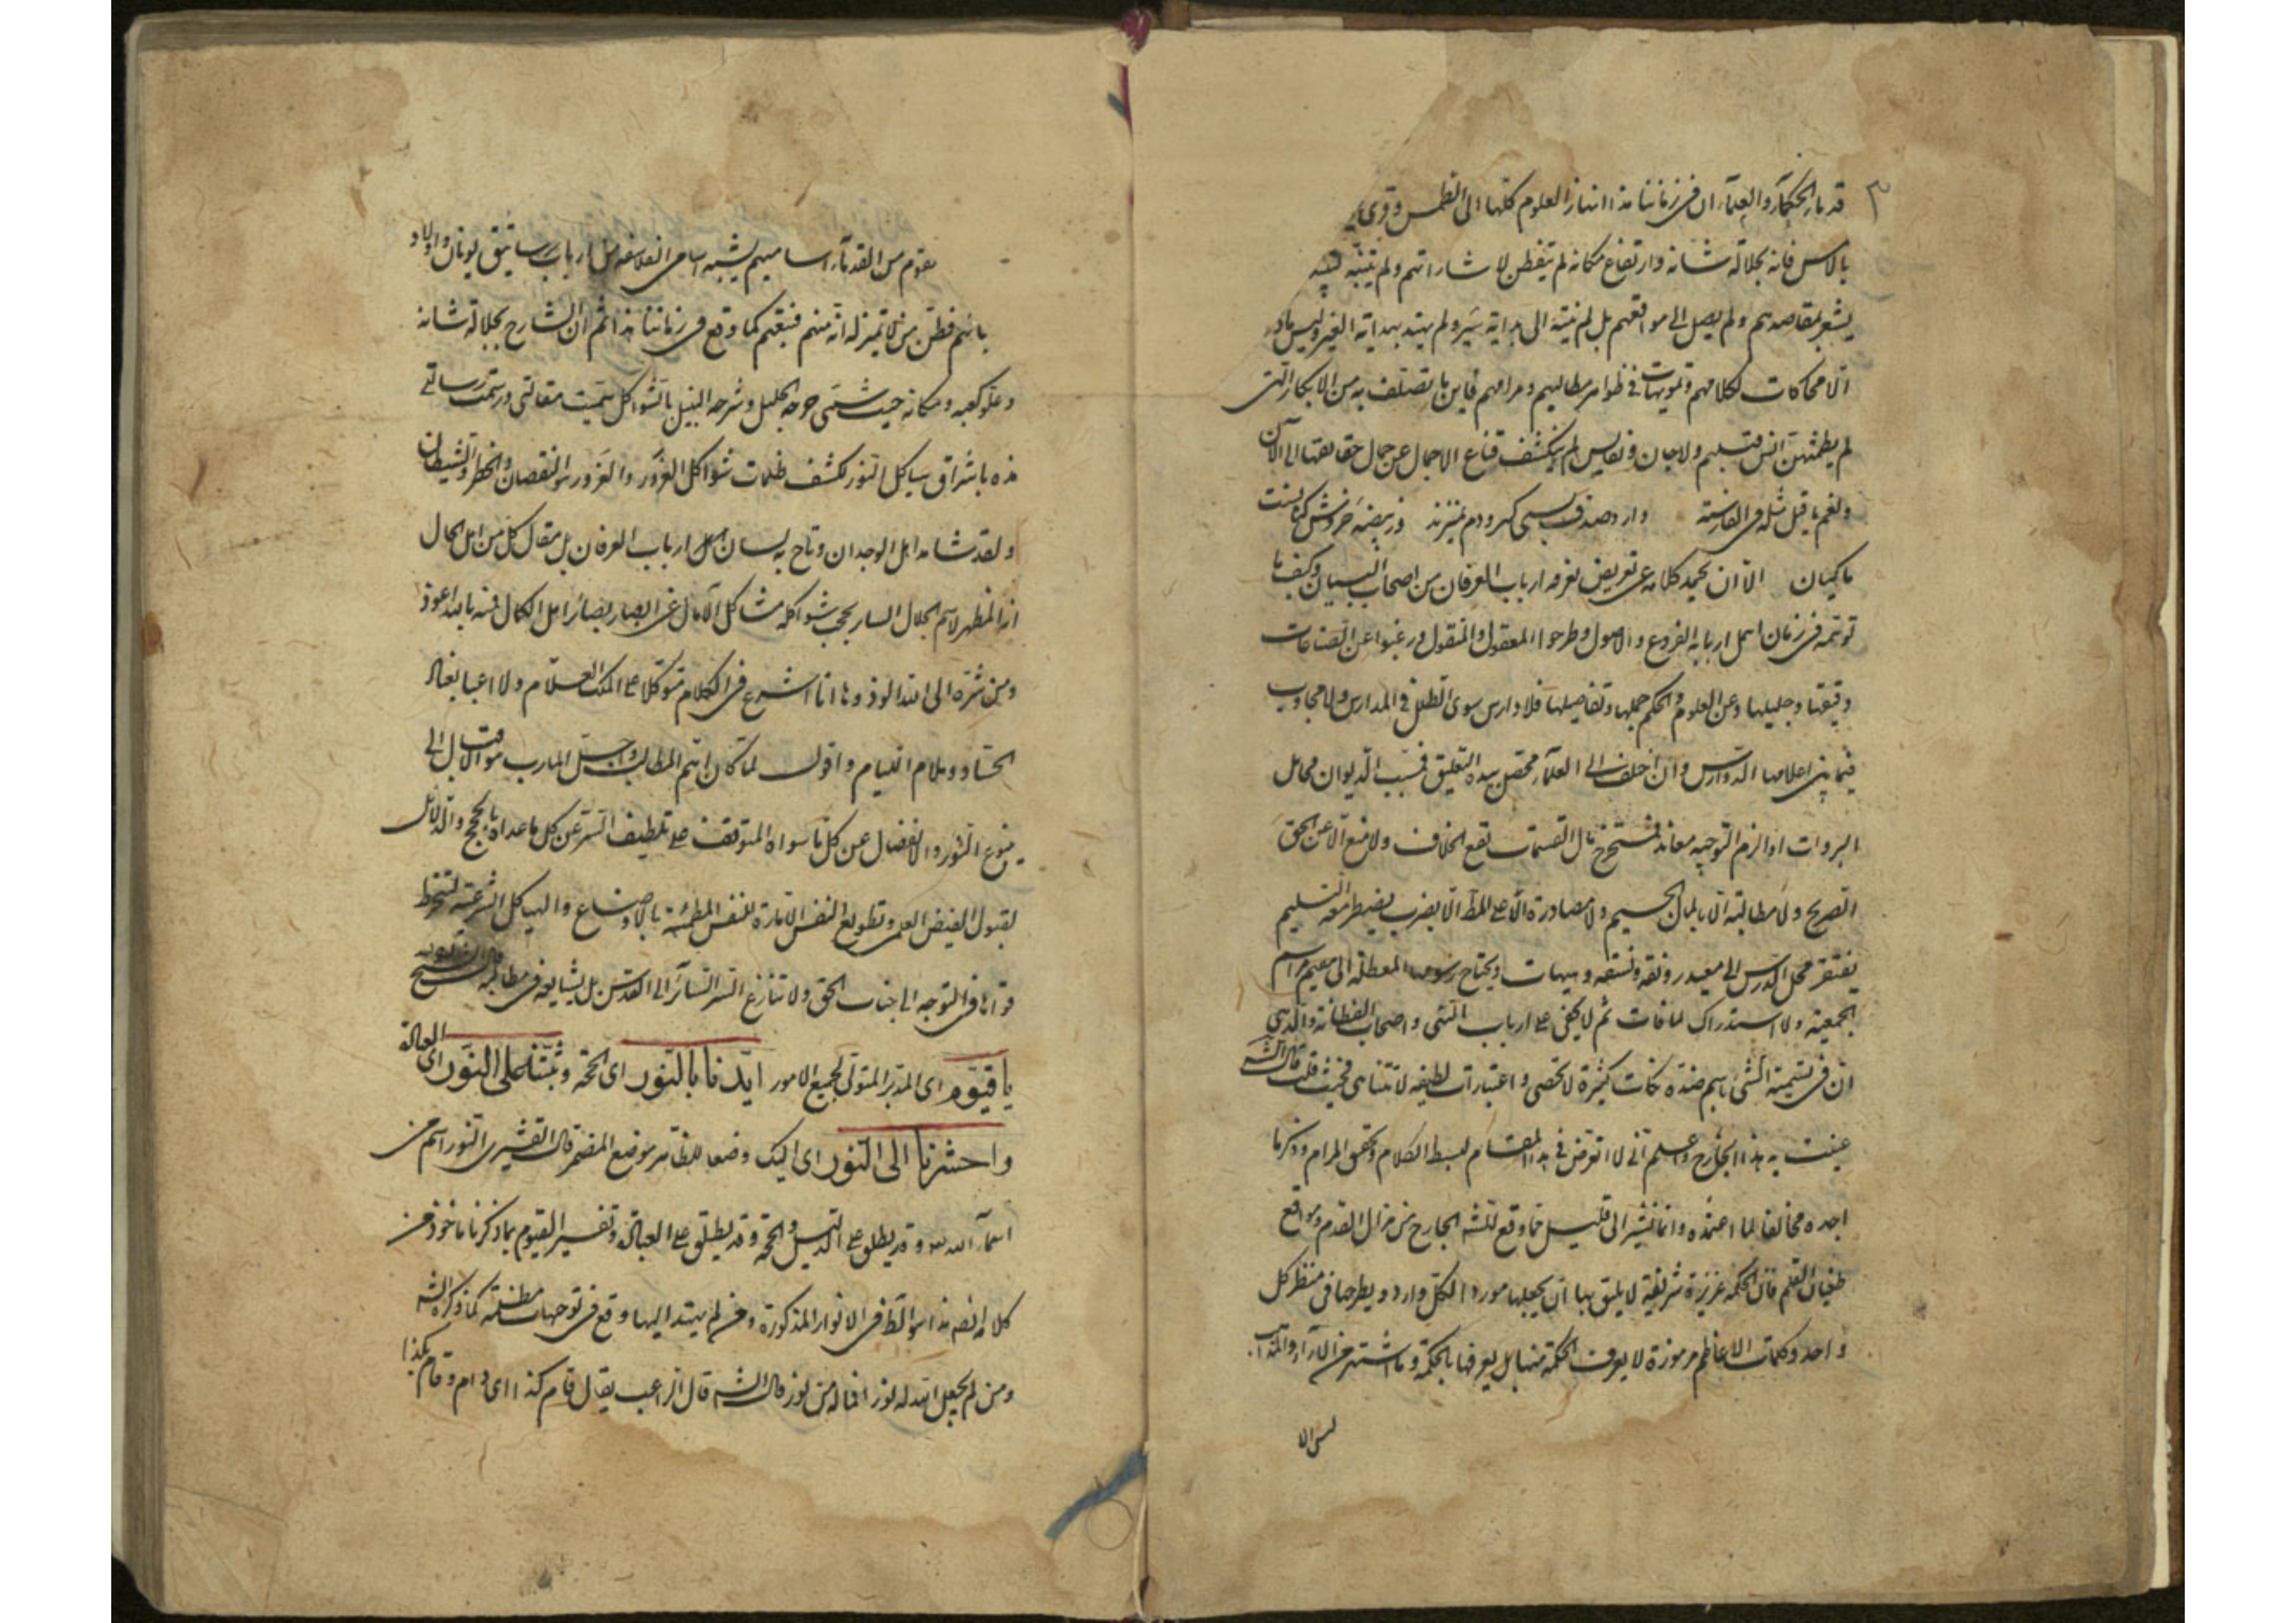 ٣
قد بار الحكماء والعلماء ان فى زماننا هذا انهار العلوم كلها الى الطمس وقرى
بالامس فانه بجلالة شانه وارتفاع مكانه لم يتفطن لاشاراتهم ولم يتنبه
يشعر بمقاصدهم ولم يصل الى مواقعهم بل لم ينته الى بداية سير ولم يهتد بهداية الغير وليس
الا محاكات لكلامهم وتمويهات فى ظواهر مطالبهم ومرامهم فاين ما تصلف به من الابكار التى
لم يطمثهن انس قبلهم ولا جان ونفايس لم ينكشف قناع الاجمال عن جمال حقايقها الى الآن
ولنعم ما قيل مثله فى الفارسية دارد صدف بسى كهر ودم نميزند وز بيضه خروش
ماكيان الا ان يحمد كلامه على تعريض يعرفه ارباب العرفان من اصحاب البيان وكيف ما
توتمه فى زمان اهمل اربابه الفروع والاصول وطرحوا المعقول والمنقول ورغبوا عن الصناعات
دقيقها وجليلها وعن العلوم والحكم جملها وتفاصيلها فلا دارس سوى الطلل فى المدارس ولا مجاوب
فيما بين اعلامها الدوارس وان اختلف الى العلماء محصل بيده التعليق فسبب الديوان محامل
البروات او الزم التوجيه معاند فمستخرج مال القسمات تقع الخلاف ولا منع الا عن الحق
الصريح ولا مطالبة الا بالمال الجسيم ولا مصادرة الا على المط الا بضرب يضطر معه التسليم
يفتقر محل الدرس الى معيد رونقه ونسقه وهيهات ويحتاج رسومه المعطلة الى مقيم مراسم
الجمعية ولا استدراك لما فات ثم لا يخفى على ارباب النهى واصحاب الفطانة والذهن
ان فى تسمية الشئ باسم ضده نكات كثيرة لا تحصى واعتبارات لطيفه لا تتناهى فحيث قلت قال الشه
عنيت به هذا الجارح واعلم انى لا اتعرض فى هذا المقام لبسط الكلام وتحقق المرام وذكر ما
اجده مخالفا لما اعتمده وانما نشير الى قليل مما وقع للشه الجارح من مزال القدم ومواقع
طغيان القلم فان الحكمه عزيزة شريفة لا يليق بها ان يجعلها مورد الكل وارد ويطرحها فى منظر كل
واحد وكلمات الاعاظم مرموزة لا يعرف الحكمة منها بل يعرفها بالحكمة وما اشتهر من الآراء والمذاهب
ليس الا
بقوم من القدماء اساميهم يشبه اسامى الفلاسفه مثل ارباب رساتيق يونان واولاد
بانهم فظن من لا تميز له انه منهم فتبعهم كما وقع فى زماننا هذا ثم ان الشارح بجلالة شانه
وعلو كعبه ومكانه حيث سمى جرحه الجليل وشرحه النبيل بالشواكل سميت مقالتى ورسمت رسالتى
هذه باشراق هياكل النور لكشف ظلمات شواكل الغرور والغرور هو النقصان والخطر والشيطان
ولقد شاهد اهل الوجدان وتاح به لسان ارباب العرفان بل مقال كل من اهل الحال
انه المظهر لاسم الجلال الساير بحجب شواكله مشاكل الآمال عن ابصار بصائر اهل الكمال فمنه بالله اعوذ
ومن شره الى الله الوذ وها انا اشرع فى الكلام متوكلا على الملك العلام ولا اعبا بفعال
الحساد وملام اللئام واقول لما كان اهم المطالب واجل المارب هو الاقبال الى
ينبوع النور والانفصال عن كل ما سواه المتوقف على تلطيف السر عن كل ما عداه بالحجج والدلائل
لقبول الفيض العلمى وتطويع النفس الامارة للنفس المطمئنة بالاوضاع والهياكل الشرعية لتنخرط
قواها فى التوجه الى جناب الحق ولا تنازع السر السائر الى القدس بل يشايعه فى مطالبه قال الشيخ
يا قيوم اى المدبر المتولى لجميع الامور ايدنا بالنور اى الحجة وثبتنا على النور اى العدالة
واحشرنا الى النور اى اليك وضعا للظاهر موضع المضمر قال القشيرى النور اسم من
اسماء الله وقد يطلق على الدليل والحجة وقد يطلق على العدالة وتفسير القيوم بما ذكرنا ماخوذ من
كلامه ايضه هذا هو الظ فى الانوار المذكورة ومن لم يهتد اليها وقع فى توجيهات مظلمة كما ذكره الشه
ومن لم يجعل الله له نورا فما له من نور قال الشه قال الراغب يقال قام كذا اى دام وقام بكذا